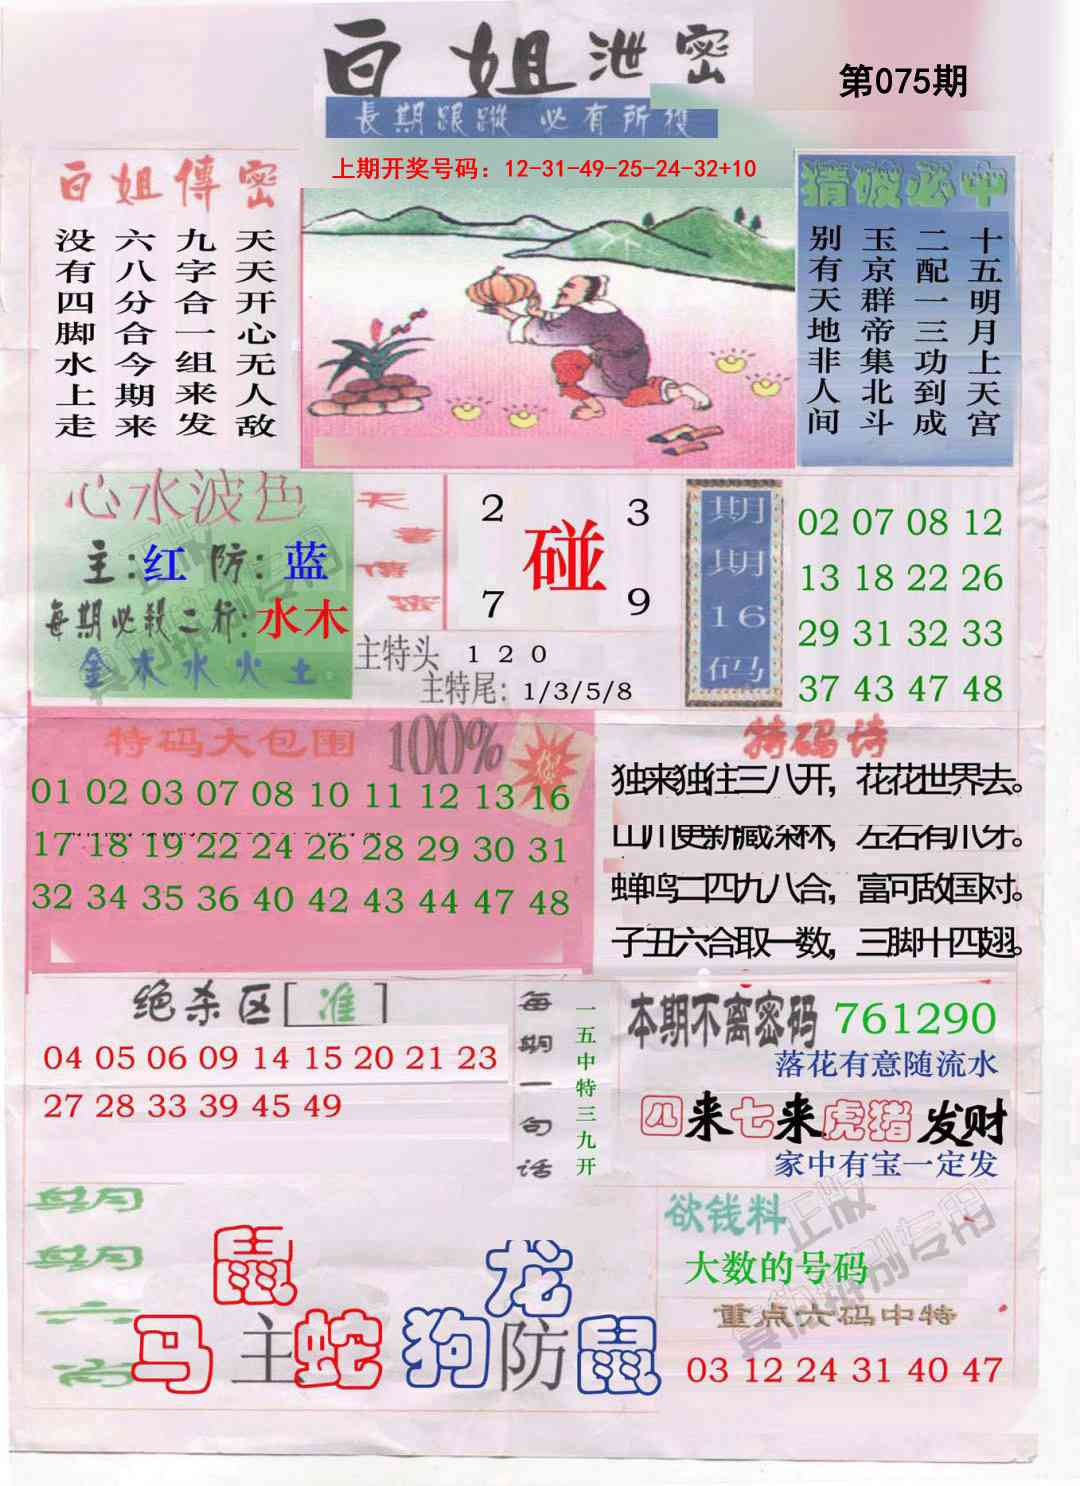 白姐泄密
第075期
長期跟蹤 必有所獲
上期开奖号码：12-31-49-25-24-32+10
白姐傳密
天天开心无人敌
九字合一组来发
六八分合今期来
没有四脚水上走
猜破必中
十五明月上天宫
二配一三功到成
玉京群帝集北斗
别有天地非人间
心水波色
主:红 防:蓝
每期必殺二行:水木
金木水火土
天書傳密
2 3
碰
7 9
主特头 1 2 0
主特尾: 1/3/5/8
期期16码
02 07 08 12
13 18 22 26
29 31 32 33
37 43 47 48
特码大包围 100%
01 02 03 07 08 10 11 12 13 16
17 18 19 22 24 26 28 29 30 31
32 34 35 36 40 42 43 44 47 48
特码诗
独来独往三八开，花花世界去。
山川更新藏深林，左右有爪牙。
蝉鸣二四九八合，富可敌国对。
子丑六合取一数，三脚十四翅。
绝杀区[准]
04 05 06 09 14 15 20 21 23
27 28 33 39 45 49
每期一句话
一五中特三九开
本期不离密码 761290
落花有意随流水
四来七来虎猪发财
家中有宝一定发
六肖
鼠
马主蛇
龙
狗防鼠
欲钱料
大数的号码
重点六码中特
03 12 24 31 40 47
正版